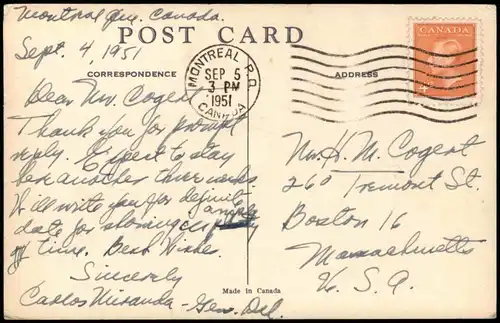 Montreal Que. Canada.
POST CARD
Sept. 4, 1951
CORRESPONDENCE
ADDRESS
MONTREAL P.Q.
SEP 5
3 PM
1951
CANADA
CANADA
4
Dear Mr. Cogert
Thank you for prompt
reply. Expect to stay
here another three weeks.
Will write you for definite
date for showing
of time. Best Wishes.
Sincerely
Carlos Miranda - Gen. Del.
Mr. H. M. Cogert
260 Tremont St.
Boston 16
Massachusetts
U. S. A.
Made in Canada